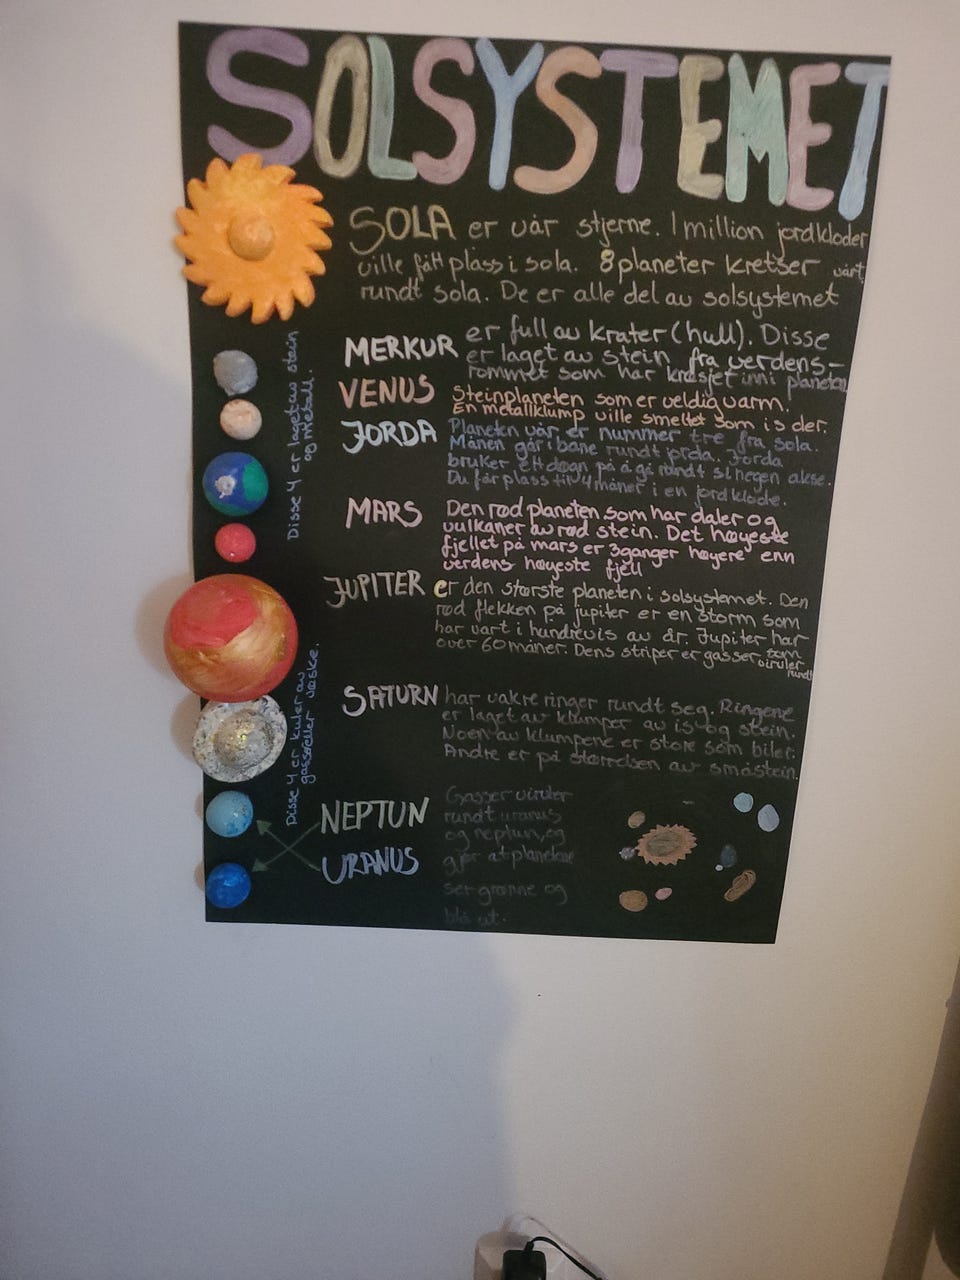 SOLSYSTEMET
SOLA er vår stjerne. 1 million jordkloder
ville fått plass i sola. 8 planeter kretser vårt
rundt sola. De er alle del av solsystemet
MERKUR er full av krater (hull). Disse
er laget av stein fra verdens-
rommet som har krasjet inni planeten
VENUS Steinplaneten som er veldig varm.
En metallklump ville smeltet som is der.
JORDA Planeten vår er nummer tre fra sola.
Månen går i bane rundt jorda. Jorda
bruker ett døgn på å gå rundt si negen akse.
Du får plass til 4 måner i en jordklode.
Disse 4 er laget av stein
og metall.
MARS Den rød planeten som har daler og
vulkaner av rød stein. Det høyeste
fjellet på mars er 3 ganger høyere enn
verdens høyeste fjell
JUPITER er den største planeten i solsystemet. Den
rød flekken på jupiter er en storm som
har vart i hundrevis av år. Jupiter har
over 60 måner. Dens striper er gasser som
virvler
rundt
SATURN har vakre ringer rundt seg. Ringene
er laget av klumper av is og stein.
Noen av klumpene er store som biler.
Andre er på størrelsen av småstein.
Disse 4 er kuler av
gass eller væske.
NEPTUN
URANUS
Gasser virvler
rundt uranus
og neptun, og
gjør at planetene
ser grønne og
blå ut.